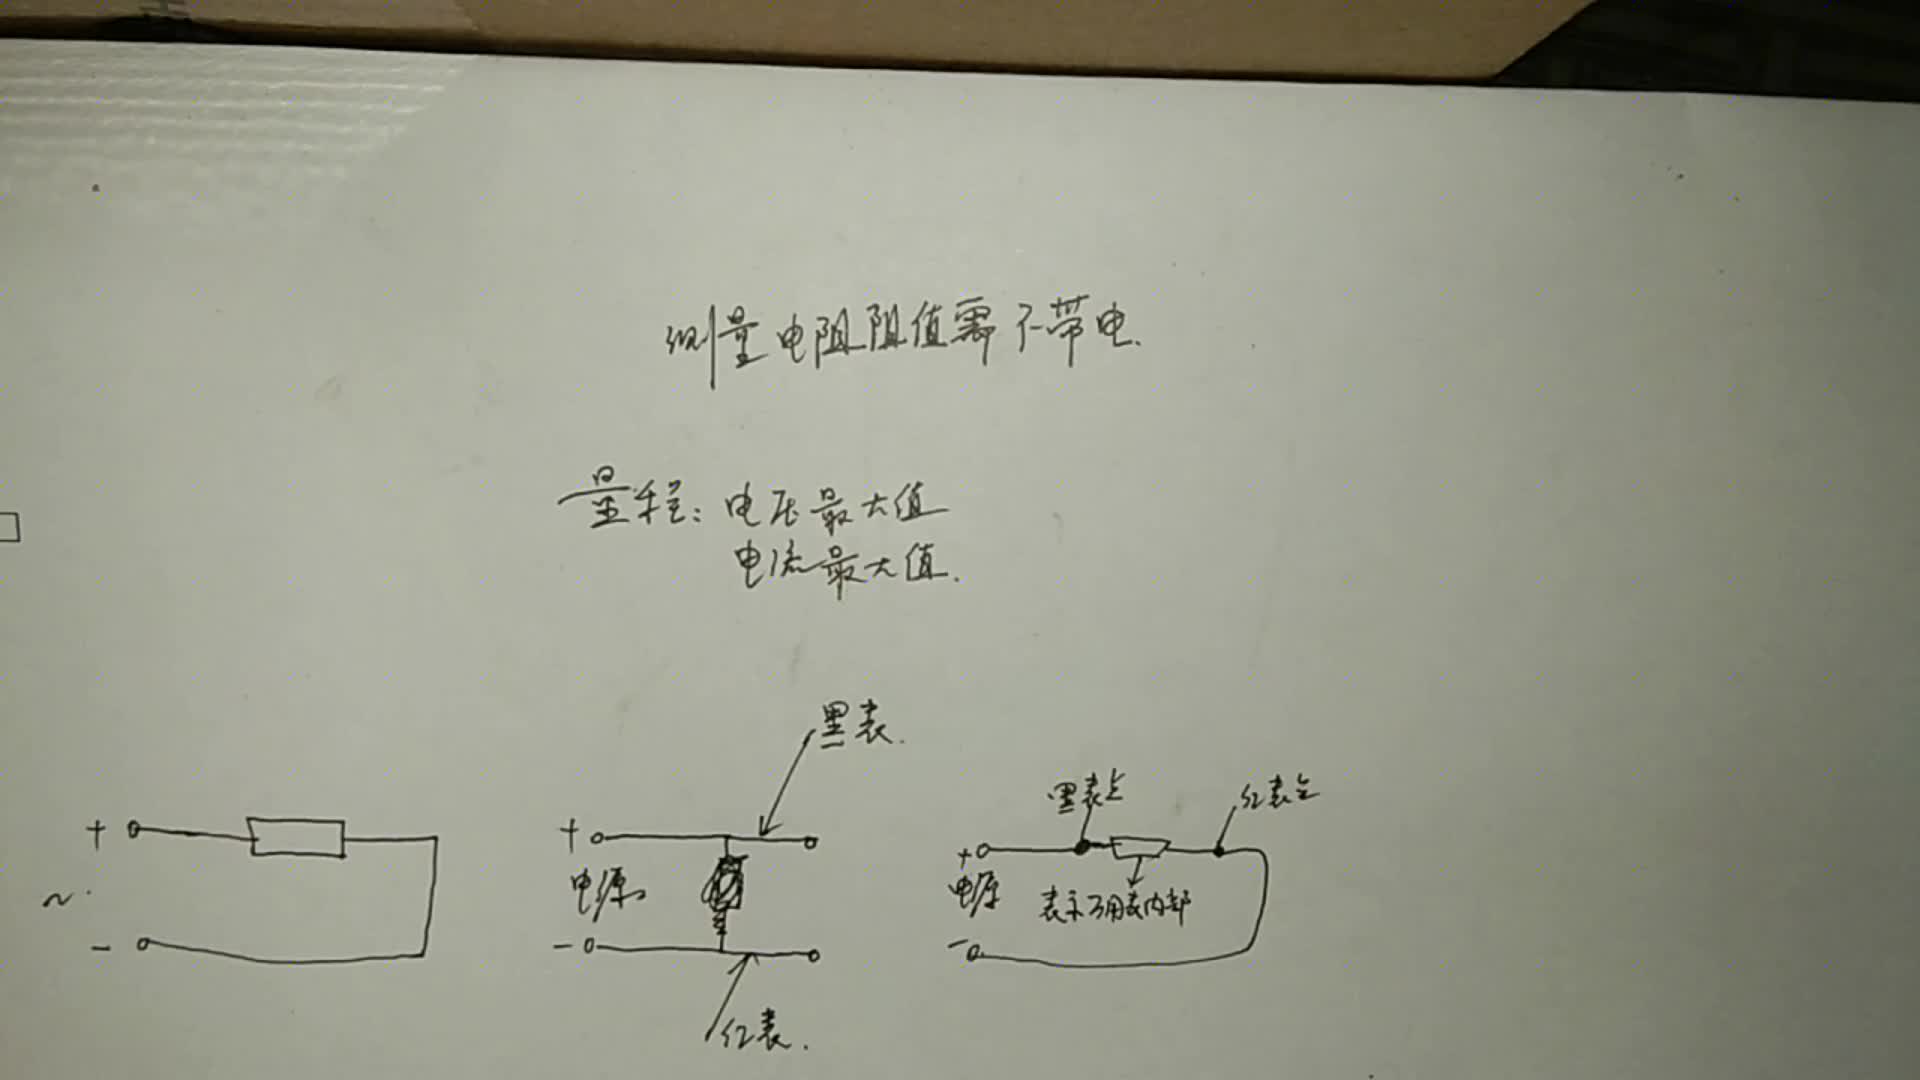 测量电阻阻值需不带电.
量程: 电压最大值
电流最大值.
黑表.
黑表笔
红表笔
+
+
+
电源
电源
表示万用表内部
~
-
-
-
红表.